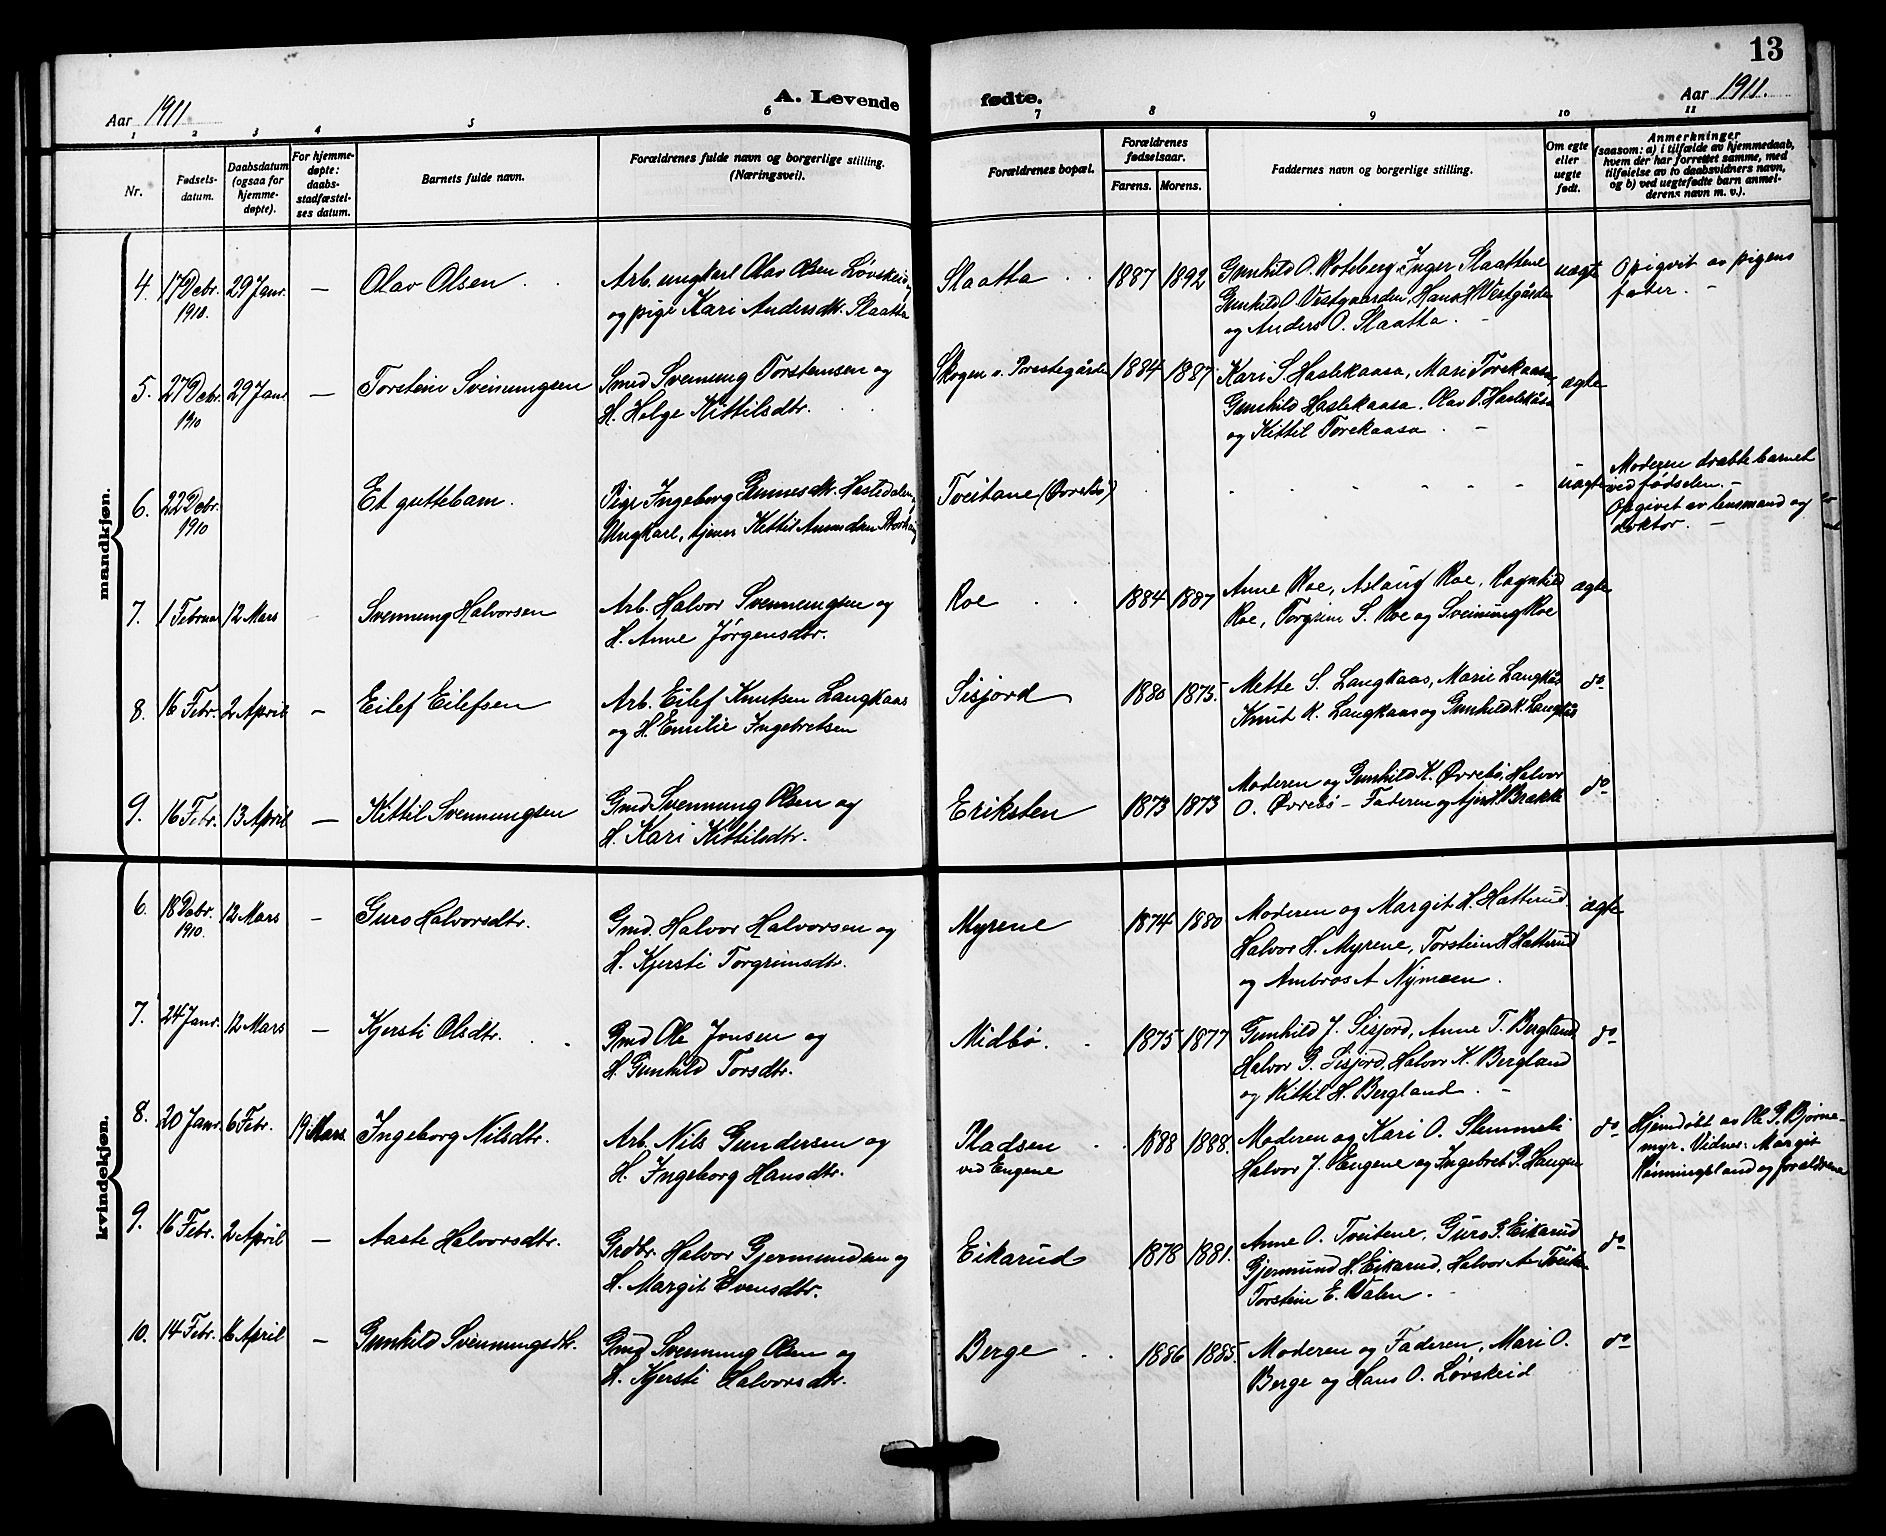 13
Aar 1911.
A. Levende fødte.
Aar 1911.
1 2 3 4 5 6 7 8 9 10 11
Nr.
Fødsels-
datum.
Daabsdatum
(ogsaa for
hjemme-
døpte).
For hjemme-
døpte:
daabs-
stadfæstel-
ses datum.
Barnets fulde navn.
Forældrenes fulde navn og borgerlige stilling.
(Næringsvei).
Forældrenes bopæl.
Forældrenes
fødselsaar.
Farens. Morens.
Faddernes navn og borgerlige stilling.
Om egte
eller
uegte
født.
Anmerkninger
(saasom: a) i tilfælde av hjemmedaab,
hvem der har forrettet samme, med
tilføielse av to daabsvidners navn,
og b) ved uegtefødte barn anmel-
derens navn m. v.).
mandkjøn.
4. 17 Debr. 29 Janr. — Olav Olsen. Arb. ungkarl Olav Olsen Løvskeid Slaatta 1887 1892 Gunhild O. Roteberg, Inger Slaattene uægte Opigvit av pigens
1910. og pige Kari Andersdtr. Slaatta Gunhild O. Vestgaarden, Hans H Vestgårde fater. —
og Anders O. Slaatta. —
5. 27 Debr. 29 Janr. — Torstein Sveinungsen Smed Svennung Torstensen og Skogen u. Prestegårde 1884 1887 Kari S. Haslekaasa, Mari Torekaasa ægte
1910 H. Helge Kittilsdtr. Gunhild Haslekaasa, Olav T. Haslekåsa
og Kittil Torekaasa. —
6. 22 Debr. Et guttebarn. Pige Ingeborg Gunnesdtr. Tveitane (Øvrebø) uægte Moderen dræbte barnet
1910 Ungkarl, tjener Kittil ved fødselen. —
Opgivet av lensmand og
doktor. —
7. 1 Februar 12 Mars Svennung Halvorsen Arb. Halvor Svennungsen og Roe 1884 1887 Anne Roe, Aslaug Roe, Ragnhild ægte
H. Anne Jørgensdtr. Roe, Torgrim S. Roe og Sveinung Roe
8. 16 Febr. 2 April — Eilef Eilefsen Arb. Eilef Knutsen Langkaas Sisjord 1880 1875. Mette S. Langkaas, Marie Langkås do
og H. Emilie Ingebretsen Knut K. Langkaas og Gunhild K. Langkås
9. 16 Febr. 13 April — Kittil Svennungsen Gmd Svennung Olsen og Eriksten 1873 1873 Moderen og Gunhild K. Øvrebø, Halvor do
H. Kari Kittilsdtr. O. Øvrebø — Faderen og
kvindekjøn.
6. 18 Debr. 12 Mars — Guro Halvorsdtr. Gmd. Halvor Halvorsen og Myrene 1874 1880 Moderen og Margit H. Hatterud ægte
1910. H. Kjersti Torgrimsdtr. Halvor H. Myrene, Torstein H Hatterud
og Ambros A Nymoen.
7. 24 Janr. 12 Mars — Kjersti Olsdtr. Gmd Ole Jonsen og Midbø. 1875 1877 Gunhild J. Sisjord, Anne T. Bergland do
H. Gunhild Torsdtr. Halvor G. Sisjord, Halvor K. Bergland
og Kittil H. Bergland. —
8. 20 Janr. 6 Febr. 19 Mars. Ingeborg Nilsdtr. Arb. Nils Gundersen og Pladsen 1888 1888. Moderen og Kari O. Slemmeli do Hjemdøbt av Ole P. Bjørne-
H. Ingeborg Hansdtr. ved Engene Halvor J. Engene og Ingebret P. Haugen myr. Vidner: Margit
Rønningsland og forældrene
9. 16 Febr. 2 April — Aaste Halvorsdtr. Grdbr. Halvor Gjermundsen og Eikarud 1878 1881. Anne O. Tveitene, Guro G. Eikarud do
H. Margit Evensdtr. Gjermund H. Eikarud, Halvor A Tveiten
Torstein E. Dalen.
10. 14 Febr. 16 April — Gunhild Svennungsdtr. Gmd Svennung Olsen og Berge 1886 1885. Moderen og Faderen, Mari O. do
H. Kjersti Halvorsdtr. Berge og Hans O. Løvskeid